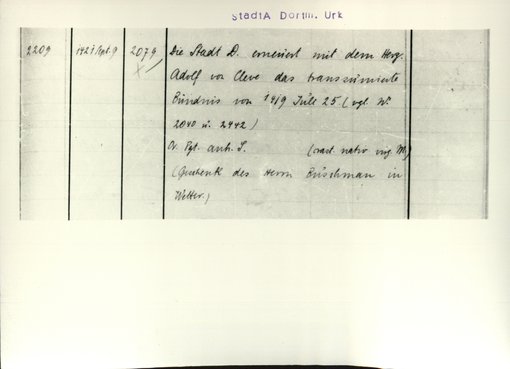 StadtA Dortm. Urk
2209 1421 Spt. 9 2079 Die Stadt D. erneuert mit dem Herzg.
Adolf von Cleve das transsumierte
Bündnis von 1419 Juli 25. (vgl. Nr.
2040 u. 2442)
Or. Pgt. anh. S.
(Geschenk des Herrn Büschman in
Wetter.)